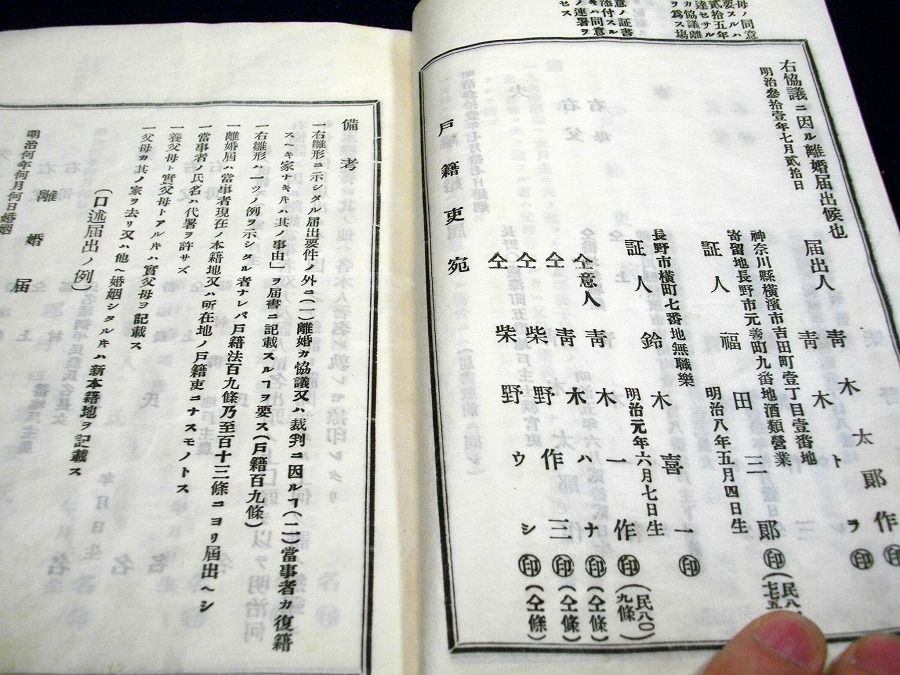 母ノ同意
要スルハ
貳拾五年
達セサル
カ協議離
ヲ爲ス塲
意ノ証書
添付スル
キハ同意
ノ連署ヲ
セス
右協議ニ因ル離婚届出候也
明治叄拾壹年七月貳拾日
届出人 靑木太郎作
靑木トヲ㊞
神奈川縣橫濱市吉田町壹丁目壹番地
寄留地長野市元善町九番地酒類營業
証人 福田三郎㊞(民八
明治八年五月四日生
七七五
長野市橫町七番地無職業
証人 鈴木喜一㊞
明治元年六月七日生
同意人 靑木一作㊞(民八〇九條)
仝 靑木ハナ㊞(仝條)
仝 柴野作三㊞(仝條)
仝 柴野ウシ㊞(仝條)
戸籍吏宛
備考
一右雛形ニ示シタル届出要件ノ外ニ(一)離婚カ協議又ハ裁判ニ因ルヿ(二)當事者カ復籍
スヘキ家ナキキハ其ノ事由」ヲ届書ニ記載スルヿヲ要ス(戸籍百九條)
一右雛形ハ一ツノ例ヲ示シタル者ナレバ戸籍法百九條乃至百十三條ニヨリ届出ヘシ
一離婚屆ハ當事者現在ノ本籍地又ハ所在地ノ戸籍吏ニナスモノトス
一當事者ノ氏名ハ代署ヲ許サズ
一養父母ト實父母トアルキハ實父母ヲ記載ス
一父母カ其ノ家ヲ去リ又ハ他ヘ婚姻シタルキハ新本籍地ヲ記載ス
(口述届出ノ例)
離婚届
明治何年何月何日婚姻